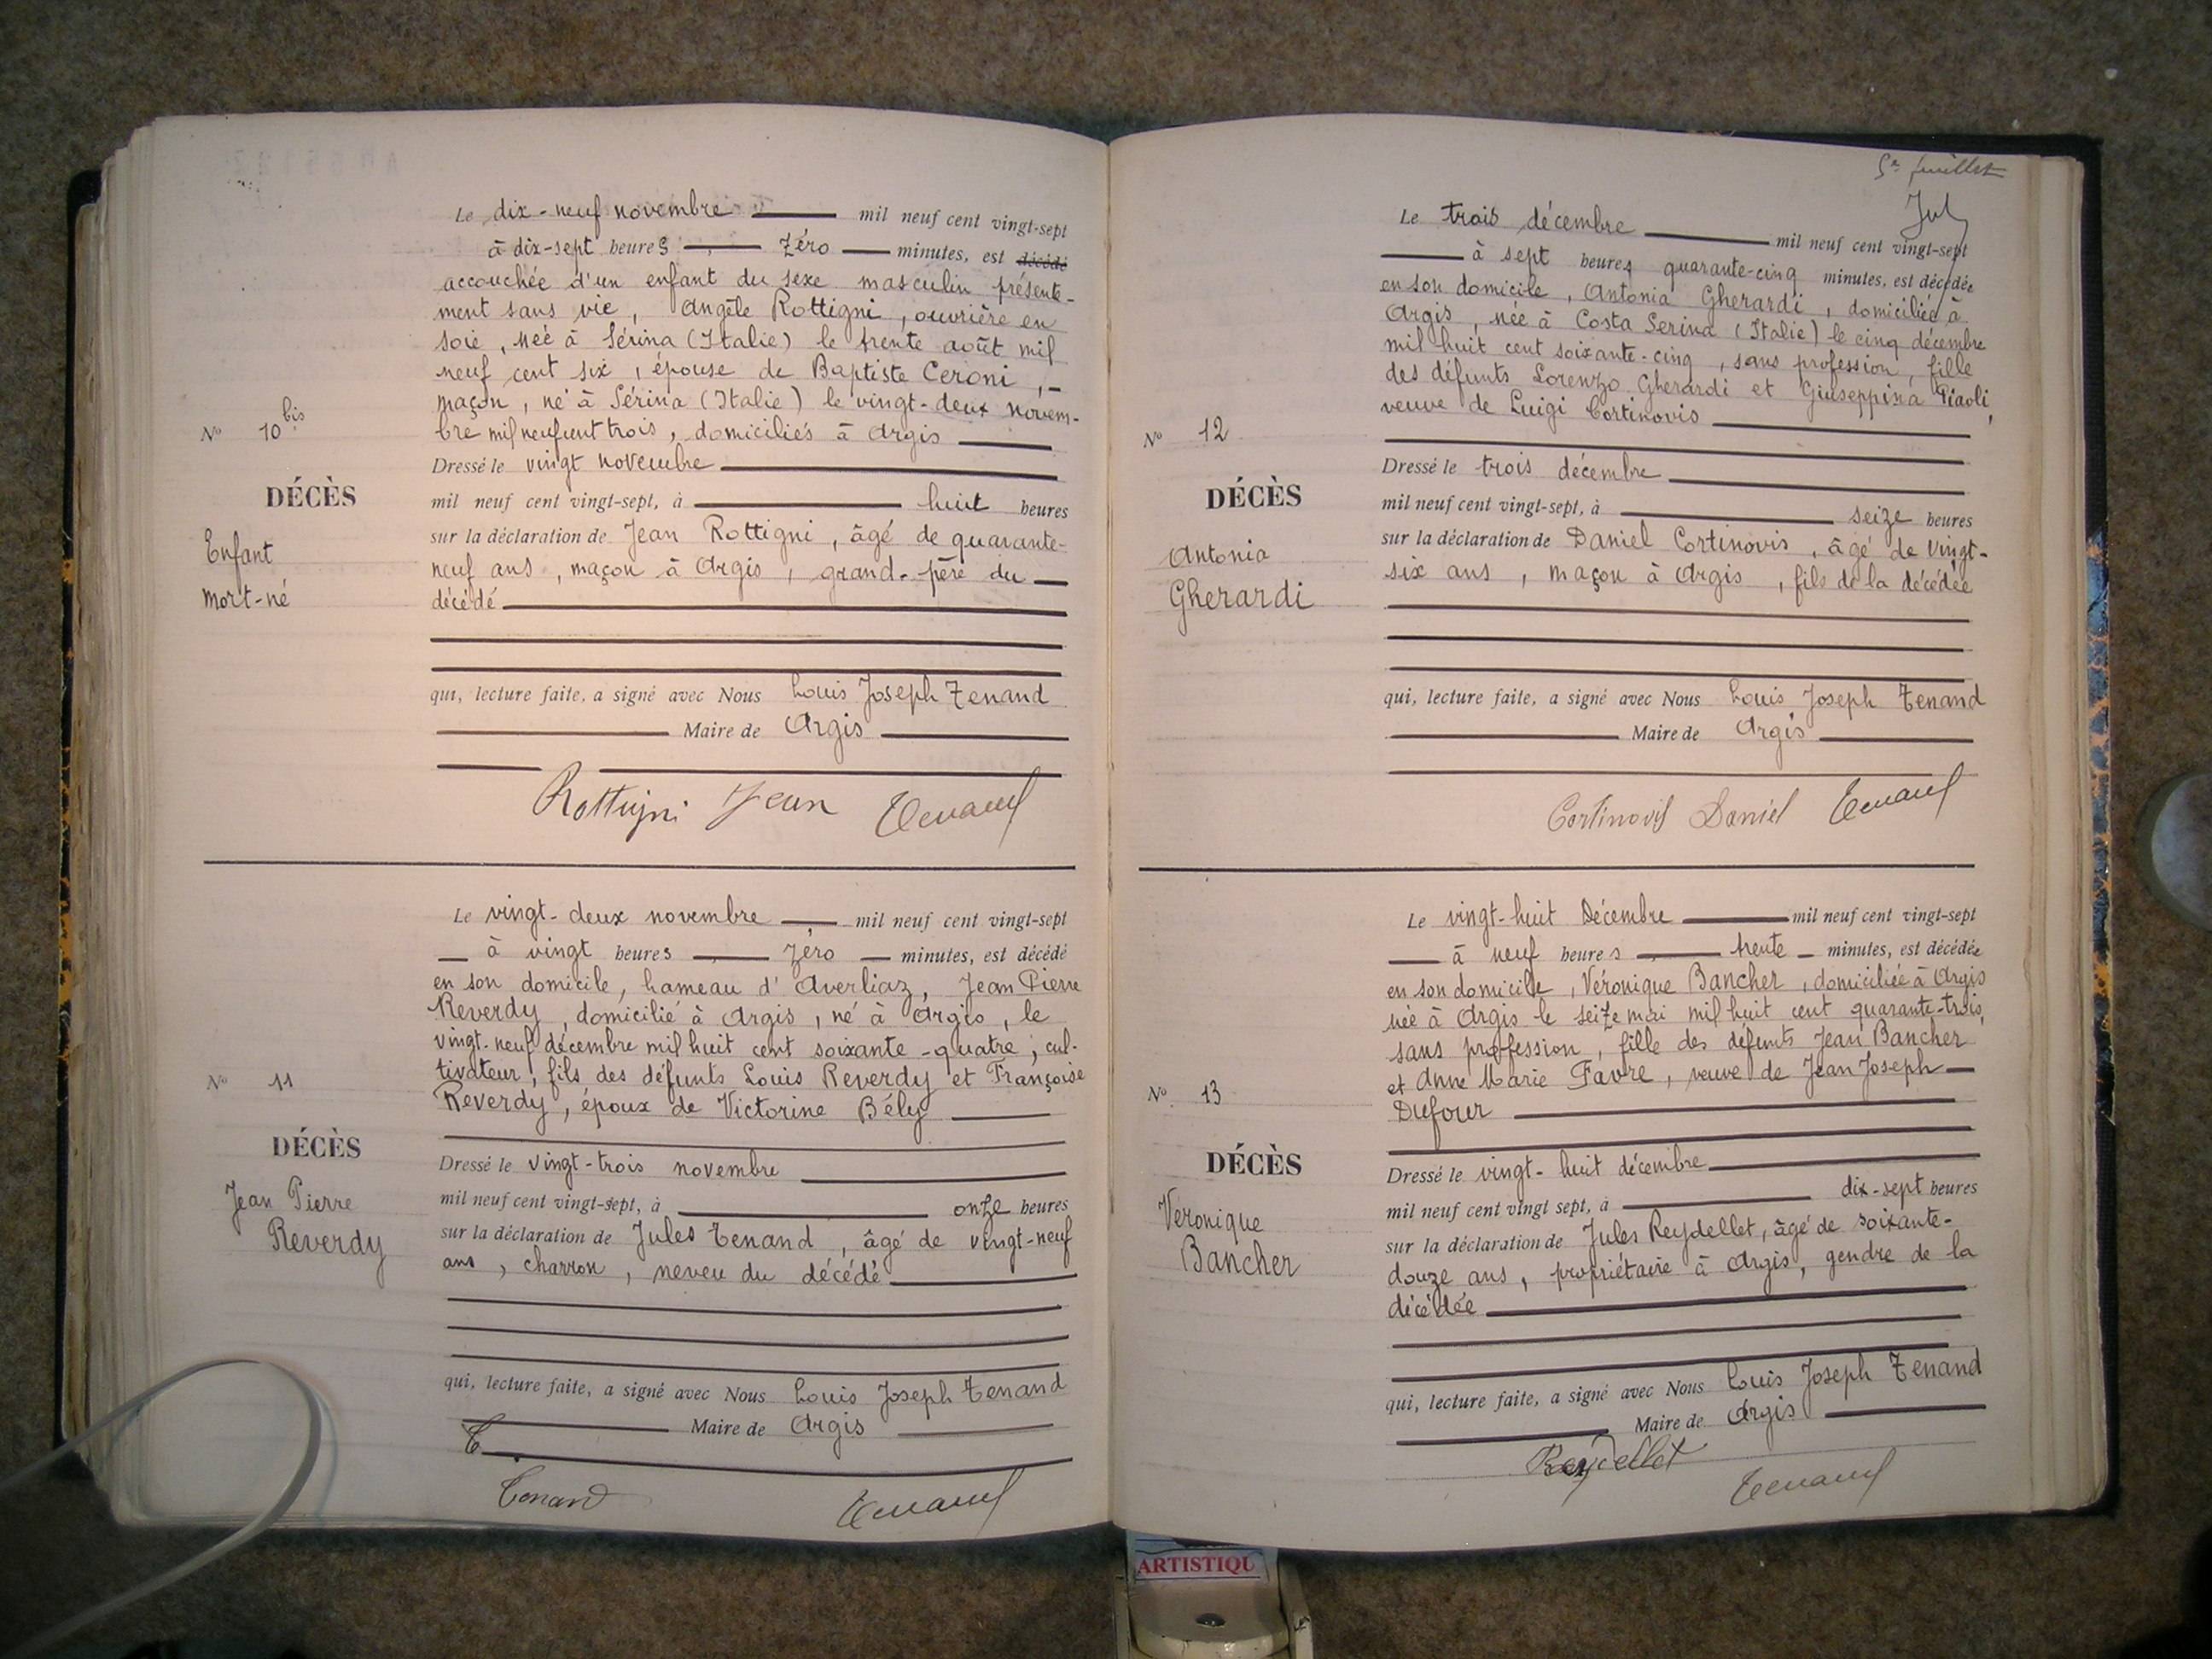 Le dix-neuf novembre mil neuf cent vingt-sept
à dix-sept heures zéro minutes, est décédé
accouchée d'un enfant du sexe masculin présente-
ment sans vie, Angèle Rottigni, ouvrière en
soie, née à Sérina (Italie) le trente août mil
neuf cent six, épouse de Baptiste Ceroni,
maçon, né à Sérina (Italie) le vingt-deux novem-
bre mil neuf cent trois, domiciliés à Argis
N° 10 bis
Dressé le vingt novembre
DÉCÈS
mil neuf cent vingt-sept, à huit heures
Enfant
mort-né
sur la déclaration de Jean Rottigni, âgé de quarante-
neuf ans, maçon à Argis, grand-père du
décédé
qui, lecture faite, a signé avec Nous Louis Joseph Tenand
Maire de Argis
Rottigni Jean Tenand
Le vingt-deux novembre mil neuf cent vingt-sept
à vingt heures zéro minutes, est décédé
en son domicile, hameau d'Averliaz, Jean Pierre
Reverdy, domicilié à Argis, né à Argis, le
vingt-neuf décembre mil huit cent soixante-quatre, cul-
tivateur, fils des défunts Louis Reverdy et Françoise
Reverdy, époux de Victorine Bély
N° 11
DÉCÈS
Jean Pierre
Reverdy
Dressé le vingt-trois novembre
mil neuf cent vingt-sept, à onze heures
sur la déclaration de Jules Tenand, âgé de vingt-neuf
ans, charron, neveu du décédé
qui, lecture faite, a signé avec Nous Louis Joseph Tenand
Maire de Argis
T
Tenand Tenand
5e feuillet
Le trois décembre mil neuf cent vingt-sept
à sept heures quarante-cinq minutes, est décédée
en son domicile, Antonia Gherardi, domiciliée à
Argis, née à Costa Serina (Italie) le cinq décembre
mil huit cent soixante-cinq, sans profession, fille
des défunts Lorenzo Gherardi et Giuseppina Tiraoli,
veuve de Luigi Cortinovis
N° 12
DÉCÈS
Antonia
Gherardi
Dressé le trois décembre
mil neuf cent vingt-sept, à seize heures
sur la déclaration de Daniel Cortinovis, âgé de vingt-
six ans, maçon à Argis, fils de la décédée
qui, lecture faite, a signé avec Nous Louis Joseph Tenand
Maire de Argis
Cortinovis Daniel Tenand
Le vingt-huit Décembre mil neuf cent vingt-sept
à neuf heures trente minutes, est décédée
en son domicile, Véronique Bancher, domiciliée à Argis
née à Argis le seize mai mil huit cent quarante-trois,
sans profession, fille des défunts Jean Bancher
et Anne Marie Favre, veuve de Jean Joseph
Dufour
N° 13
DÉCÈS
Véronique
Bancher
Dressé le vingt-huit décembre
mil neuf cent vingt sept, à dix-sept heures
sur la déclaration de Jules Reydellet, âgé de soixante-
douze ans, propriétaire à Argis, gendre de la
décédée
qui, lecture faite, a signé avec Nous Louis Joseph Tenand
Maire de Argis
Reydellet Tenand
ARTISTIQU